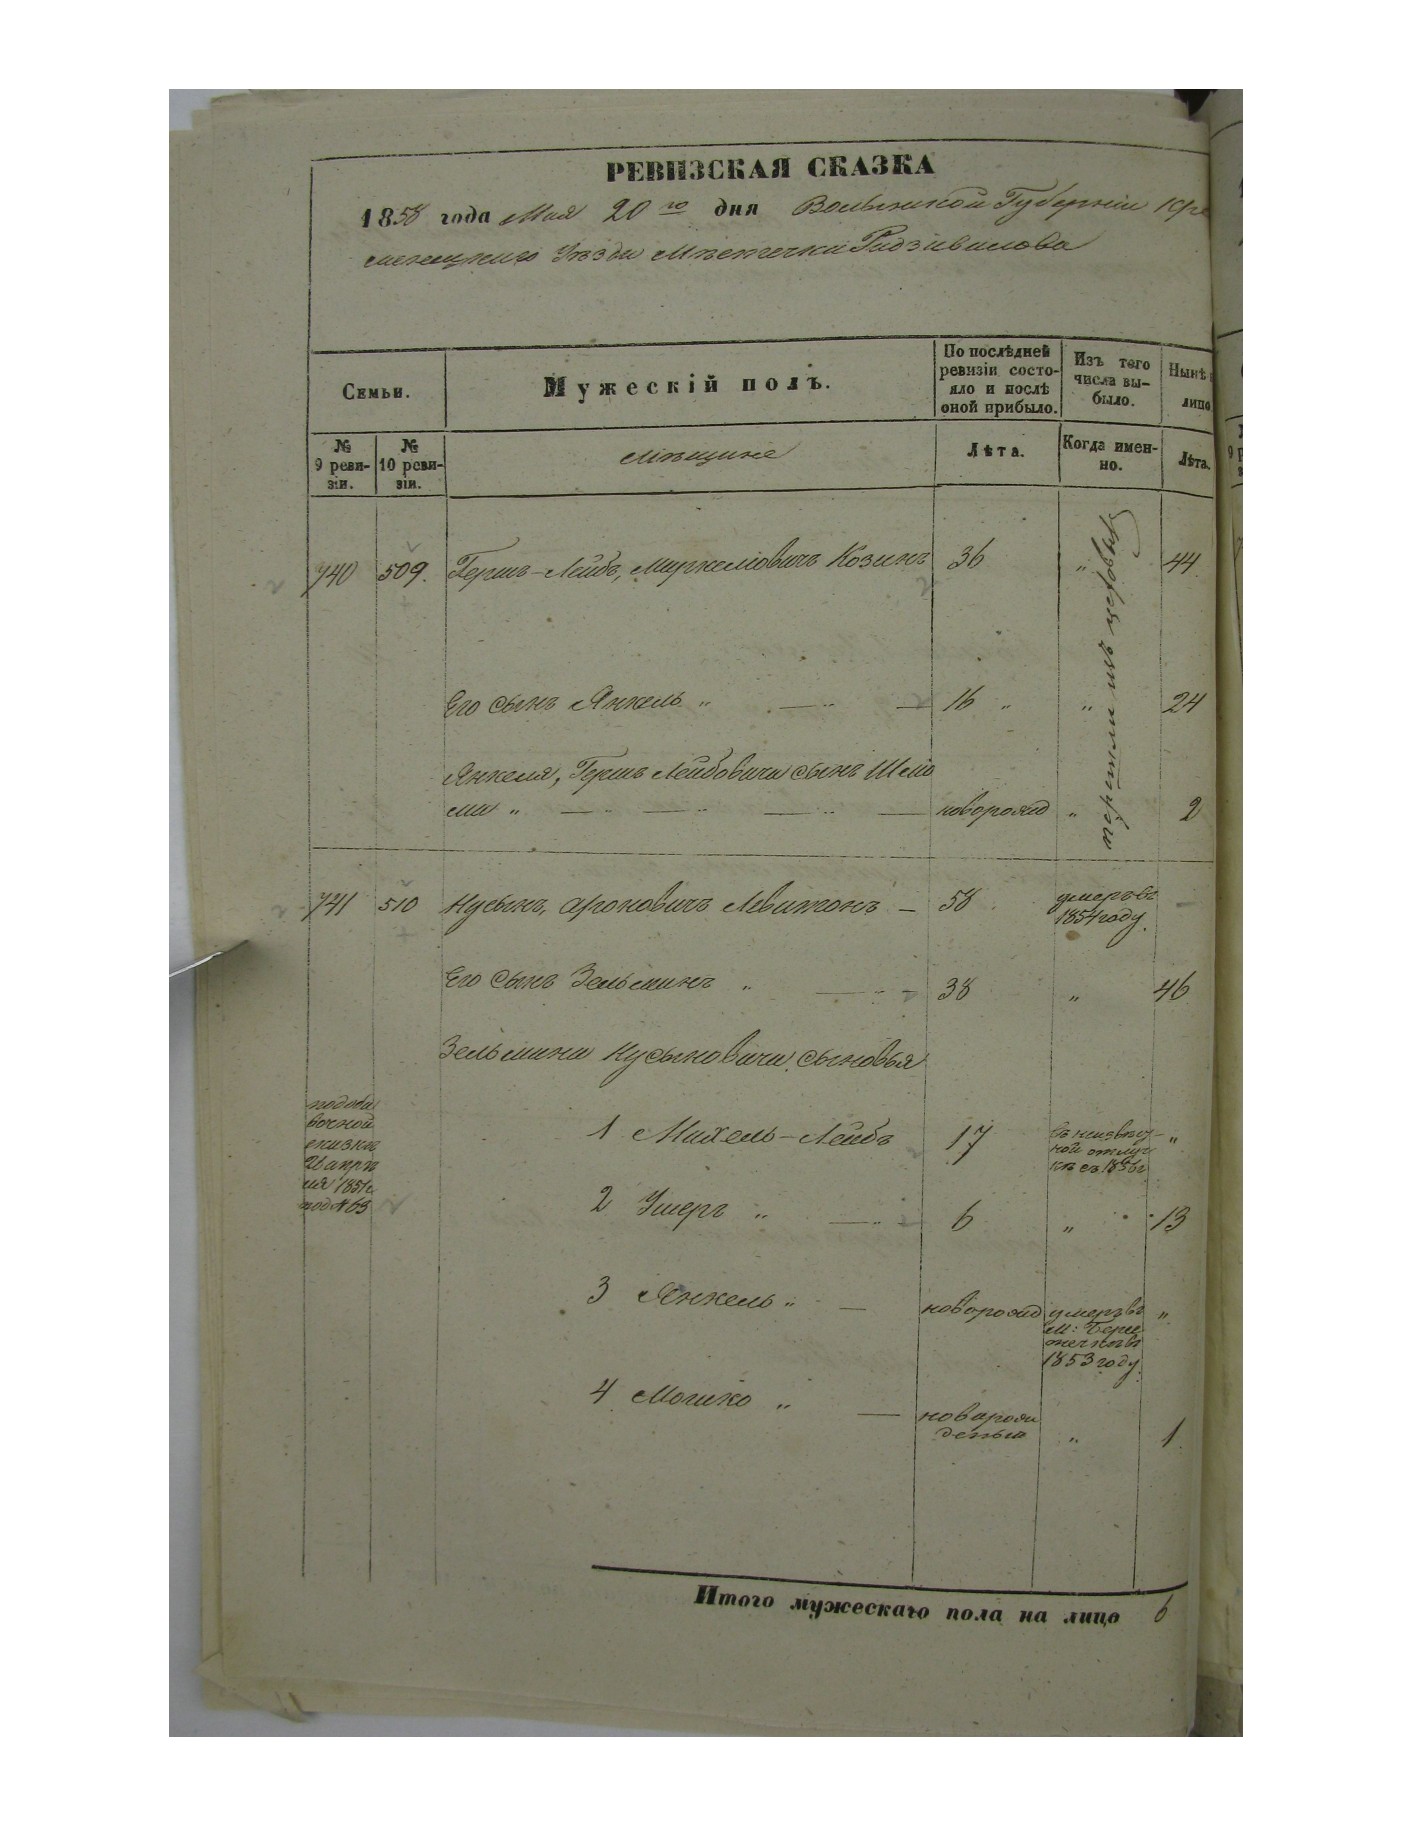 РЕВИЗСКАЯ СКАЗКА
1858 года Мая 20 го дня Волынской Губернiи Кре
менецкаго Уѣзда Мѣстечка Радзивилова
Семьи.
Мужескiй полъ.
По послѣдней
ревизiи состо-
яло и послѣ
оной прибыло.
Изъ того
числа вы-
было.
Нынѣ н
лицо
№
9 реви-
зiи.
№
10 реви-
зiи.
Мѣщане
Лѣта.
Когда имен-
но.
Лѣта.
740 509. Гершъ-Лейбъ, Меркелiовичъ Козинъ 36 " 44
перешли изъ цеховыхъ
Его сынъ Янкель " 16 " " 24
Янкеля, Гершъ Лейбовича сынъ Шлiо
ма " новорожд " 2
741 510 Нусынъ, Ароновичъ Левитонъ — 58 умеръ въ —
1854 году.
Его сынъ Зельманъ " 38 " 46
Зельмана Нусыновича сыновья
по доба
вочной
сказкѣ
апрѣ
ля 1851 г
под № 63
1 Михель-Лейбъ 17 въ неизвѣст- "
ной отлуч
кѣ съ 1856 г
2 Умеръ " 6 " 13
3 Янкель " — новорожд умеръ въ "
М: Бере
стечкѣ въ
1853 году.
4 Мошко " — новорож
денъ " 1
Итого мужескаго пола на лицо 6